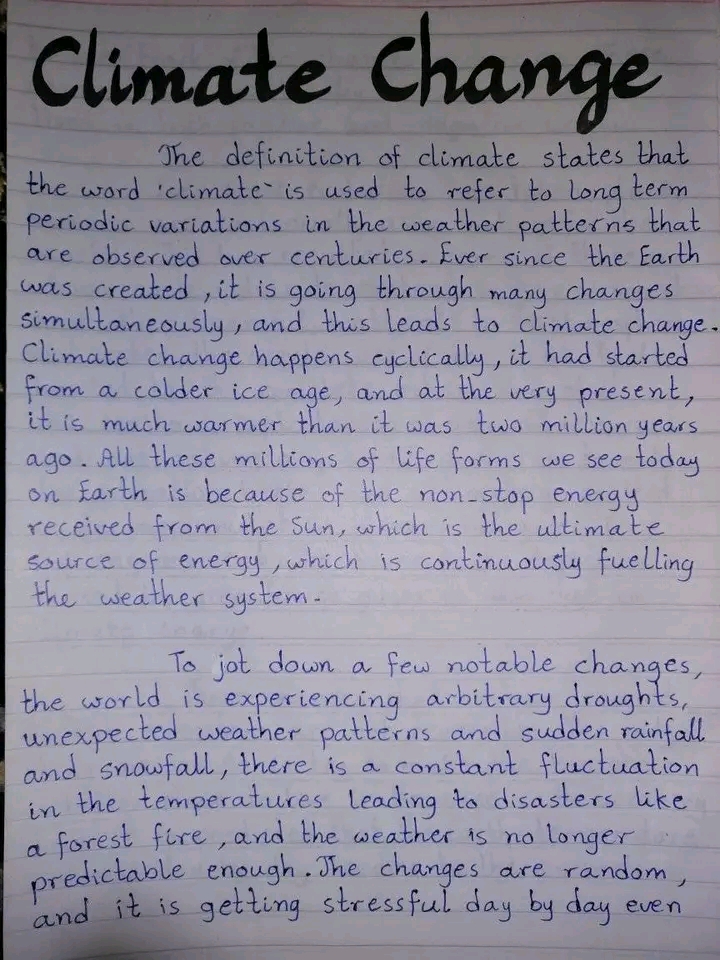 Climate Change
The definition of climate states that
the word 'climate' is used to refer to long term
periodic variations in the weather patterns that
are observed over centuries. Ever since the Earth
was created, it is going through many changes
simultaneously, and this leads to climate change.
Climate change happens cyclically, it had started
from a colder ice age, and at the very present,
it is much warmer than it was two million years
ago. All these millions of life forms we see today
on Earth is because of the non-stop energy
received from the Sun, which is the ultimate
source of energy, which is continuously fuelling
the weather system.
To jot down a few notable changes,
the world is experiencing arbitrary droughts,
unexpected weather patterns and sudden rainfall
and snowfall, there is a constant fluctuation
in the temperatures leading to disasters like
a forest fire, and the weather is no longer
predictable enough. The changes are random,
and it is getting stressful day by day even